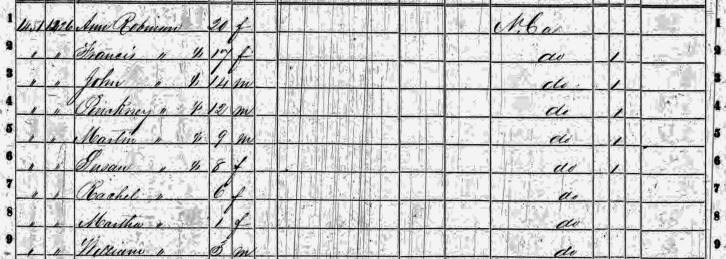 1 Ann Robinson 20 f N. Ca 1
2 " " Francis " 17 f do 1 2
3 " " John " 14 m do 1 3
4 " " Pinckney " 12 m do 1 4
5 " " Martin " 9 m do 1 5
6 " " Susan " 8 f do 1 6
7 " " Rachel " 6 f do 7
8 " " Martha " 1 f do 8
9 " " William " 3 m do 9